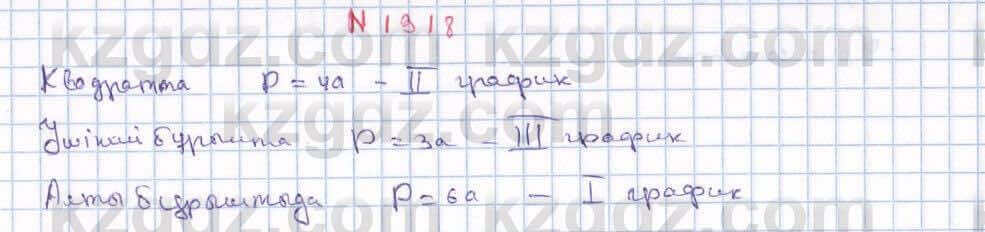 N 1918
Квадратта P = 4a - II график
Үшінші бұрышта P = 3a - III график
Алты бұрыштыда P = 6a - I график
kzgdz.com kzgdz.com
kzgdz.com
kzgdz.com kzgdz.com